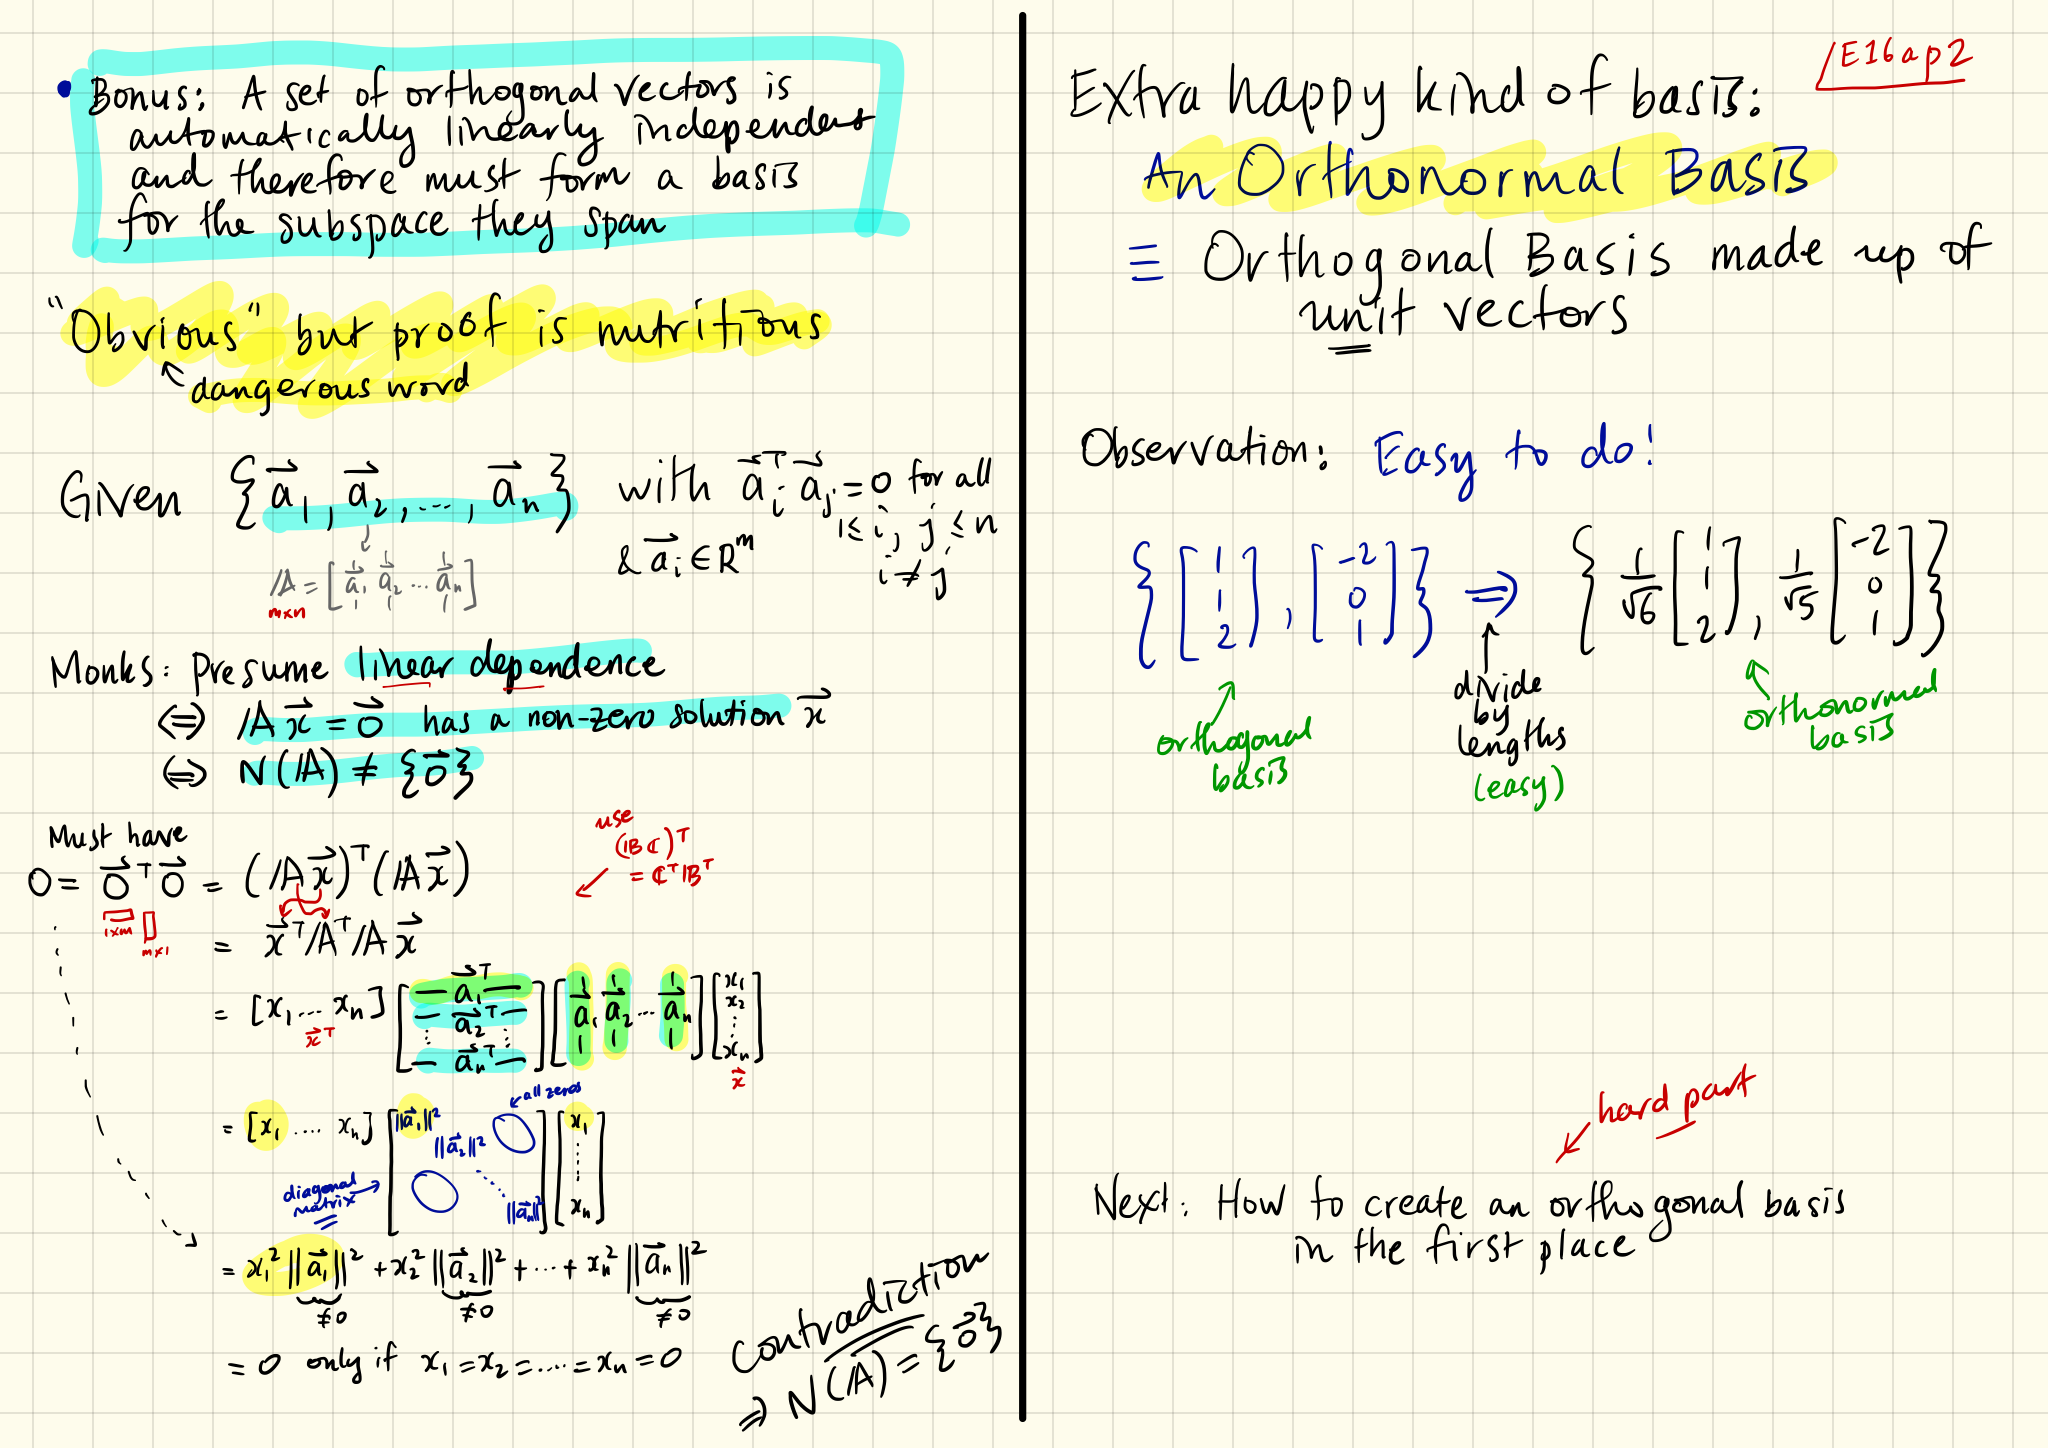 • Bonus: A set of orthogonal vectors is
automatically linearly independent
and therefore must form a basis
for the subspace they span
"Obvious" but proof is nutritious
↖ dangerous word
Given {a⃗₁, a⃗₂, ..., a⃗ₙ} with a⃗ᵢᵀ a⃗ⱼ = 0 for all
1 ≤ i, j ≤ n
i ≠ j
& a⃗ᵢ ∈ Rᵐ
A = [a⃗₁ a⃗₂ ... a⃗ₙ]
m×n
Monks: Presume linear dependence
⇔ A x⃗ = 0⃗ has a non-zero solution x⃗
⇔ N(A) ≠ {0⃗}
Must have
0 = 0⃗ᵀ 0⃗ = (A x⃗)ᵀ (A x⃗)
1×m
m×1
use
(BC)ᵀ
= Cᵀ Bᵀ
= x⃗ᵀ Aᵀ A x⃗
= [x₁ ... xₙ] [— a⃗₁ᵀ — — a⃗₂ᵀ — ⋮ — a⃗ₙᵀ —] [a⃗₁ a⃗₂ ... a⃗ₙ] [x₁ x₂ ⋮ xₙ]
x⃗ᵀ
x⃗
← all zeros
= [x₁ .... xₙ] [||a⃗₁||² ||a⃗₂||² ⋱ ||a⃗ₙ||²] [x₁ ⋮ xₙ]
diagonal
matrix →
= x₁² ||a⃗₁||² + x₂² ||a⃗₂||² + ... + xₙ² ||a⃗ₙ||²
≠0 ≠0 ≠0
= 0 only if x₁ = x₂ = .... = xₙ = 0
Contradiction
⇒ N(A) = {0⃗}
E16ap2
Extra happy kind of basis:
An Orthonormal Basis
≡ Orthogonal Basis made up of
unit vectors
Observation: Easy to do!
{[1 1 2], [-2 0 1]} ⇒ {1/√6 [1 1 2], 1/√5 [-2 0 1]}
orthogonal
basis
divide
by
lengths
(easy)
orthonormal
basis
hard part
Next: How to create an orthogonal basis
in the first place